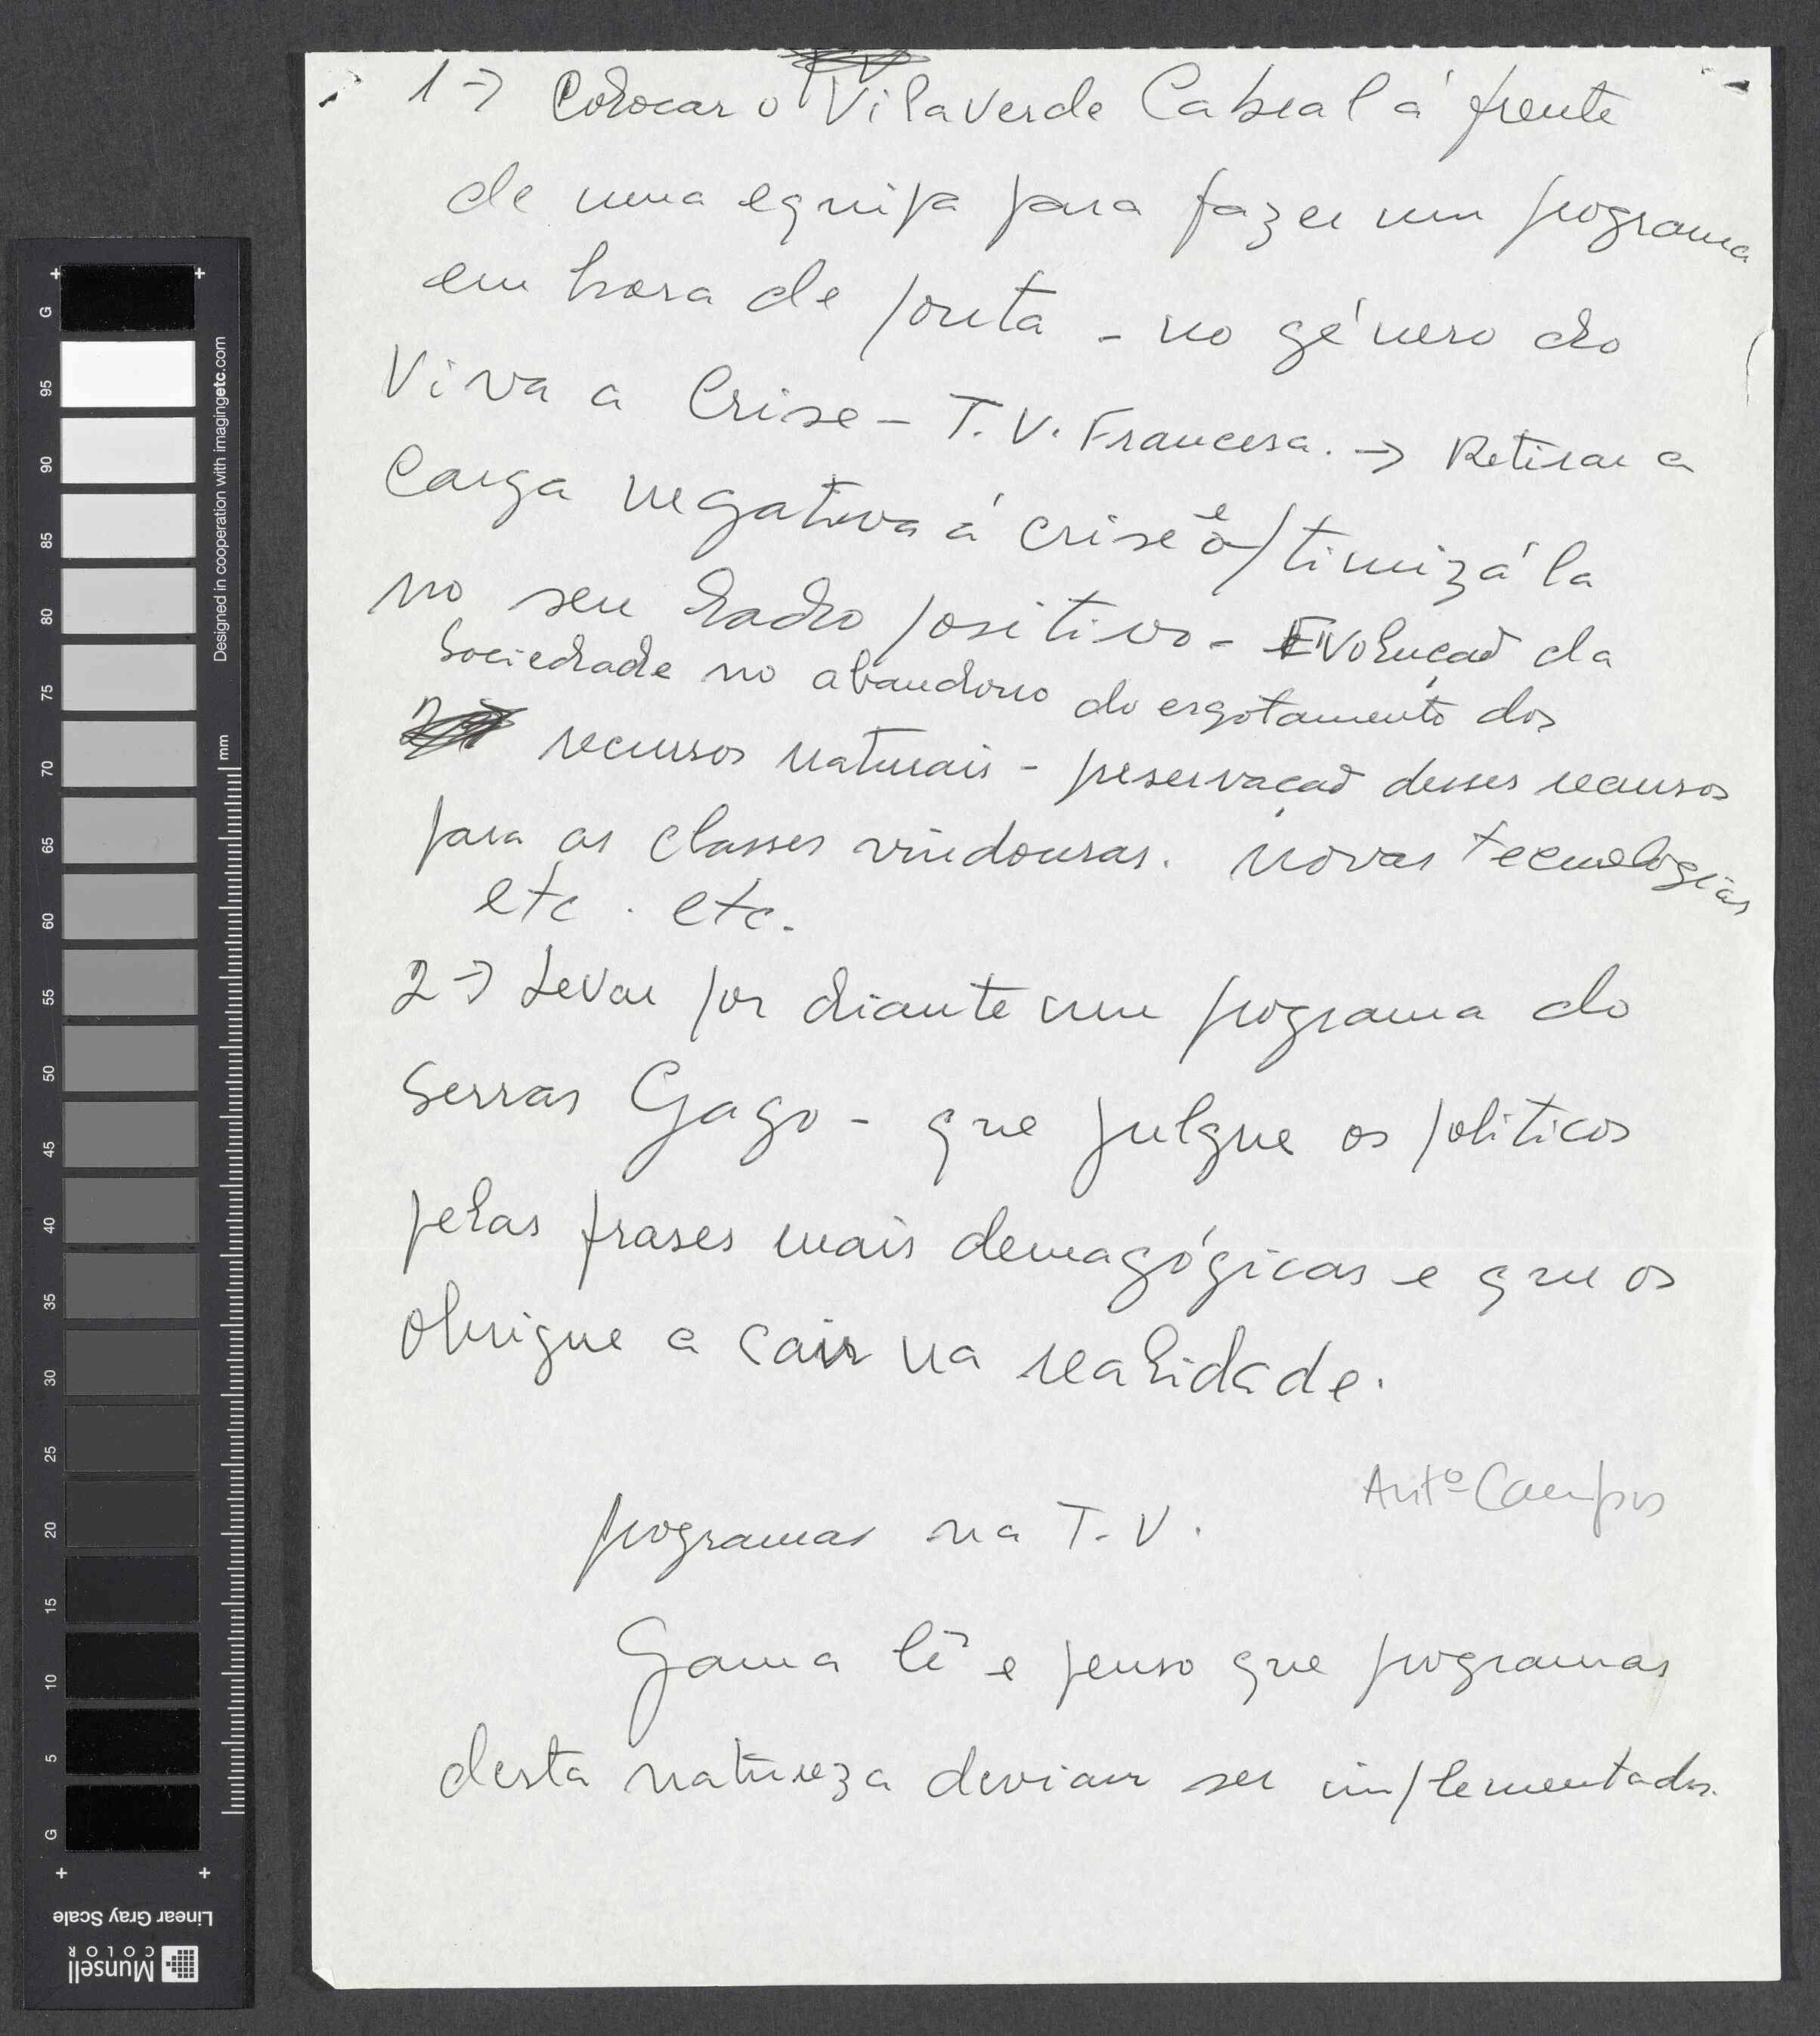 1→ Colocar o Vilaverde Cabral á frente
de uma equipa para fazer um programa
em hora de ponta - no género do
Viva a Crise - T.V. Francesa. → Retirar a
Carga negativa á crise e optimizá la
no seu lado positivo - Evolução da
Sociedade no abandono do esgotamento dos
recursos naturais - preservação desses recursos
para as classes vindouras. novas tecnologias
etc. etc.
2→ Levar por diante um programa do
Serras Gago - que julgue os politicos
pelas frases mais demagógicas e que os
obrigue a cair na realidade.
Antº Campos
programas na T.V.
Gama lê e penso que programas
desta natureza deviam ser implementados.
G
95
90
85
80
75
70
65
60
55
50
45
40
35
30
25
20
15
10
5
G
mm
Designed in cooperation with imagingetc.com
Linear Gray Scale
Munsell
COLOR